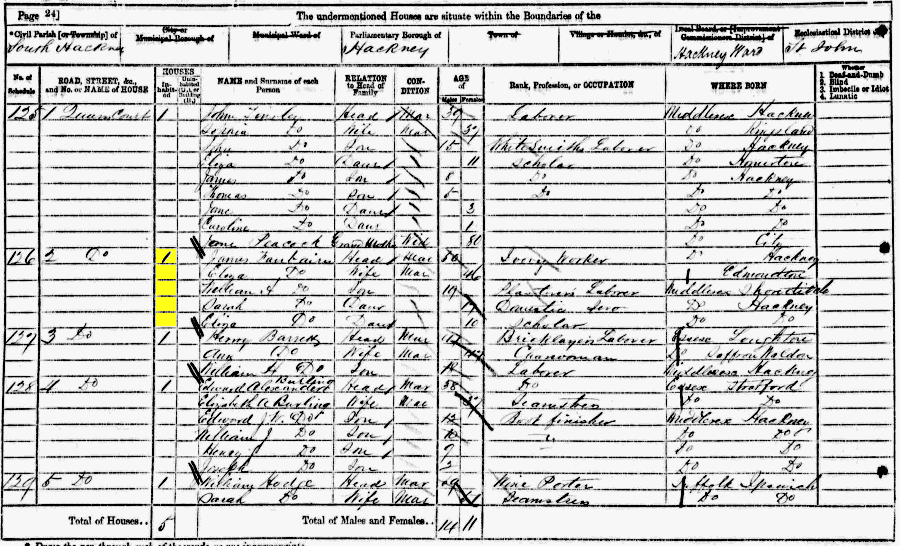 Page 24] The undermentioned Houses are situate within the Boundaries of the
*Civil Parish [or Township] of City or Municipal Borough of Municipal Ward of Parliamentary Borough of Town of Village or Hamlet, &c., of Local Board, or [Improvement Commissioners District] of Ecclesiastical District of
South Hackney Hackney Hackney Ward St John
No. of Schedule ROAD, STREET, &c., and No. or NAME of HOUSE HOUSES Inhabited Uninhabited (U.), or Building (B.) NAME and Surname of each Person RELATION to Head of Family CONDITION AGE of Males Females Rank, Profession, or OCCUPATION WHERE BORN Whether 1. Deaf-and-Dumb 2. Blind 3. Imbecile or Idiot 4. Lunatic
125 1 Queens Court 1 John Head Mar 39 Laborer Middlesex Hackney
Sophia Do Wife Mar 37 Do Kingsland
John Do Son 15 Whitesmiths Laborer Do Hackney
Eliza Do Daur 11 Scholar Do
James Do Son 8 Do Do Hackney
Thomas Do Son 5 Do Do Do
Jane Do Daur 3 Do Do
Caroline Do Daur 1 Do Do
Jane Peacock Grand Mother Wid 80 Do City
126 2 Do 1 James Fairbairn Head Mar 50 Ivory Worker Do Hackney
Eliza Do Wife Mar 46 Edmonton
William A Do Son 19 Plasterers Laborer Middlesex Shoreditch
Sarah Do Daur 17 Domestic Serv Do Hackney
Eliza Do Daur 10 Scholar Do Do
127 3 Do 1 Henry Barrett Head Mar Bricklayers Laborer Essex Loughton
Ann Do Wife Mar Charwoman Do Saffron Walden
William H Do Son 14 Laborer Middlesex Hackney
128 4 Do 1 Edward Alexander Burling Head Mar 38 Do Essex Stratford
Elizabeth A Burling Wife Mar 37 Seamstress Do Do
Edward J W Do Son 12 Boot finisher Middlesex Hackney
William J Do Son 10 " Do Do
Henry Do Son 9 Do Do
Joseph Do Son 2 Do Do
129 5 Do 1 William Hodge Head Mar 29 Wine Porter Suffolk Ipswich
Sarah Do Wife Mar Seamstress Do Do
Total of Houses.. 5 Total of Males and Females.. 14 11